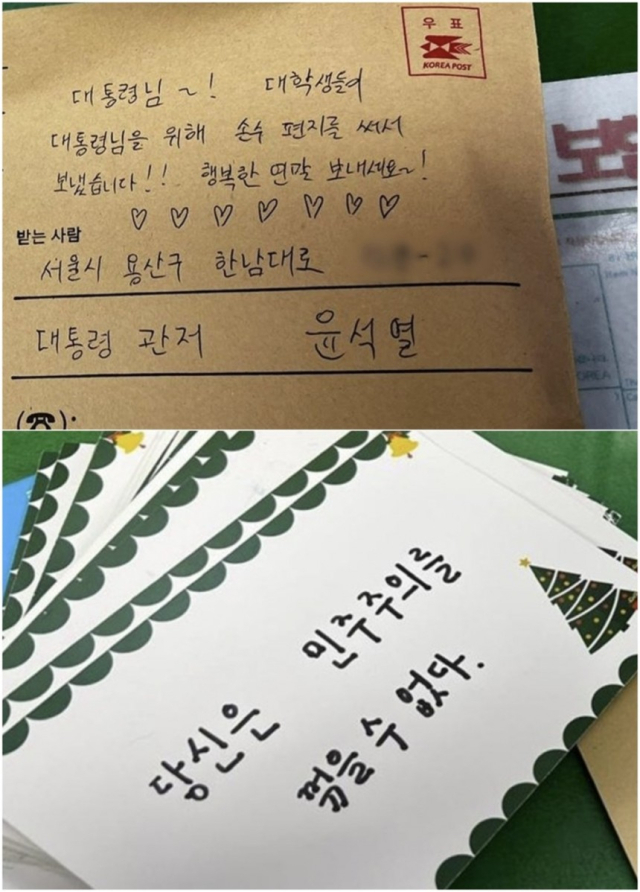 우표
KOREA POST
대통령님~! 대학생들이
대통령님을 위해 손수 편지를 써서
보냈습니다!! 행복한 연말 보내세요~!
♡ ♡ ♡ ♡ ♡ ♡ ♡
받는 사람
서울시 용산구 한남대로
대통령 관저 윤석열
(☎):
당신은 민주주의를
꺾을 수 없다.